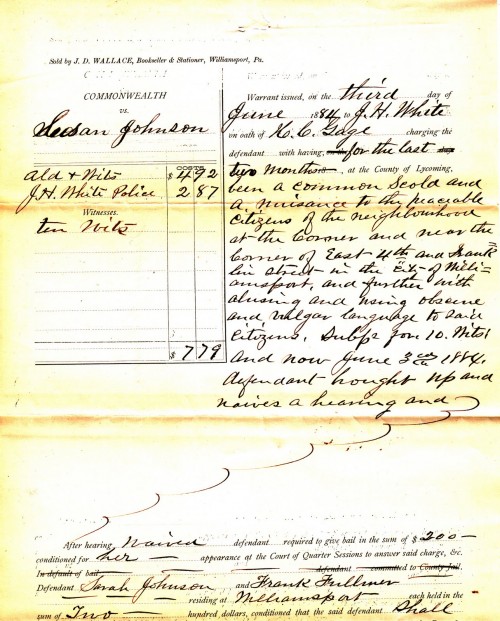 Sold by J. D. WALLACE, Bookseller & Stationer, Williamsport, Pa.
COMMONWEALTH
vs.
Susan Johnson
COSTS
Ald & Wits $ 4 92
J. H. White Police 2 87
Witnesses.
ten Wits
$ 7 79
Warrant issued, on the third day of
June 1884 to J. H. White
on oath of H. C. Gage charging the
defendant with having, on for the last day
two months, at the County of Lycoming,
been a common Scold and
a nuisance to the peaceable
Citizens of the neighbourhood
at the Corner and near the
Corner of East 4th and Frank
lin Street in the City of Willi
amsport, and further with
abusing and using obscene
and vulgar language to said
Citizens. Subps for 10. Wits
And now June 3 1884.
defendant brought up and
waives a hearing and
After hearing Waived defendant required to give bail in the sum of $ 200
conditioned for her appearance at the Court of Quarter Sessions to answer said charge, &c.
In default of bail defendant committed to County Jail.
Defendant Sarah Johnson and Frank Fullmer
residing at Williamsport each held in the
sum of Two hundred dollars, conditioned that the said defendant Shall